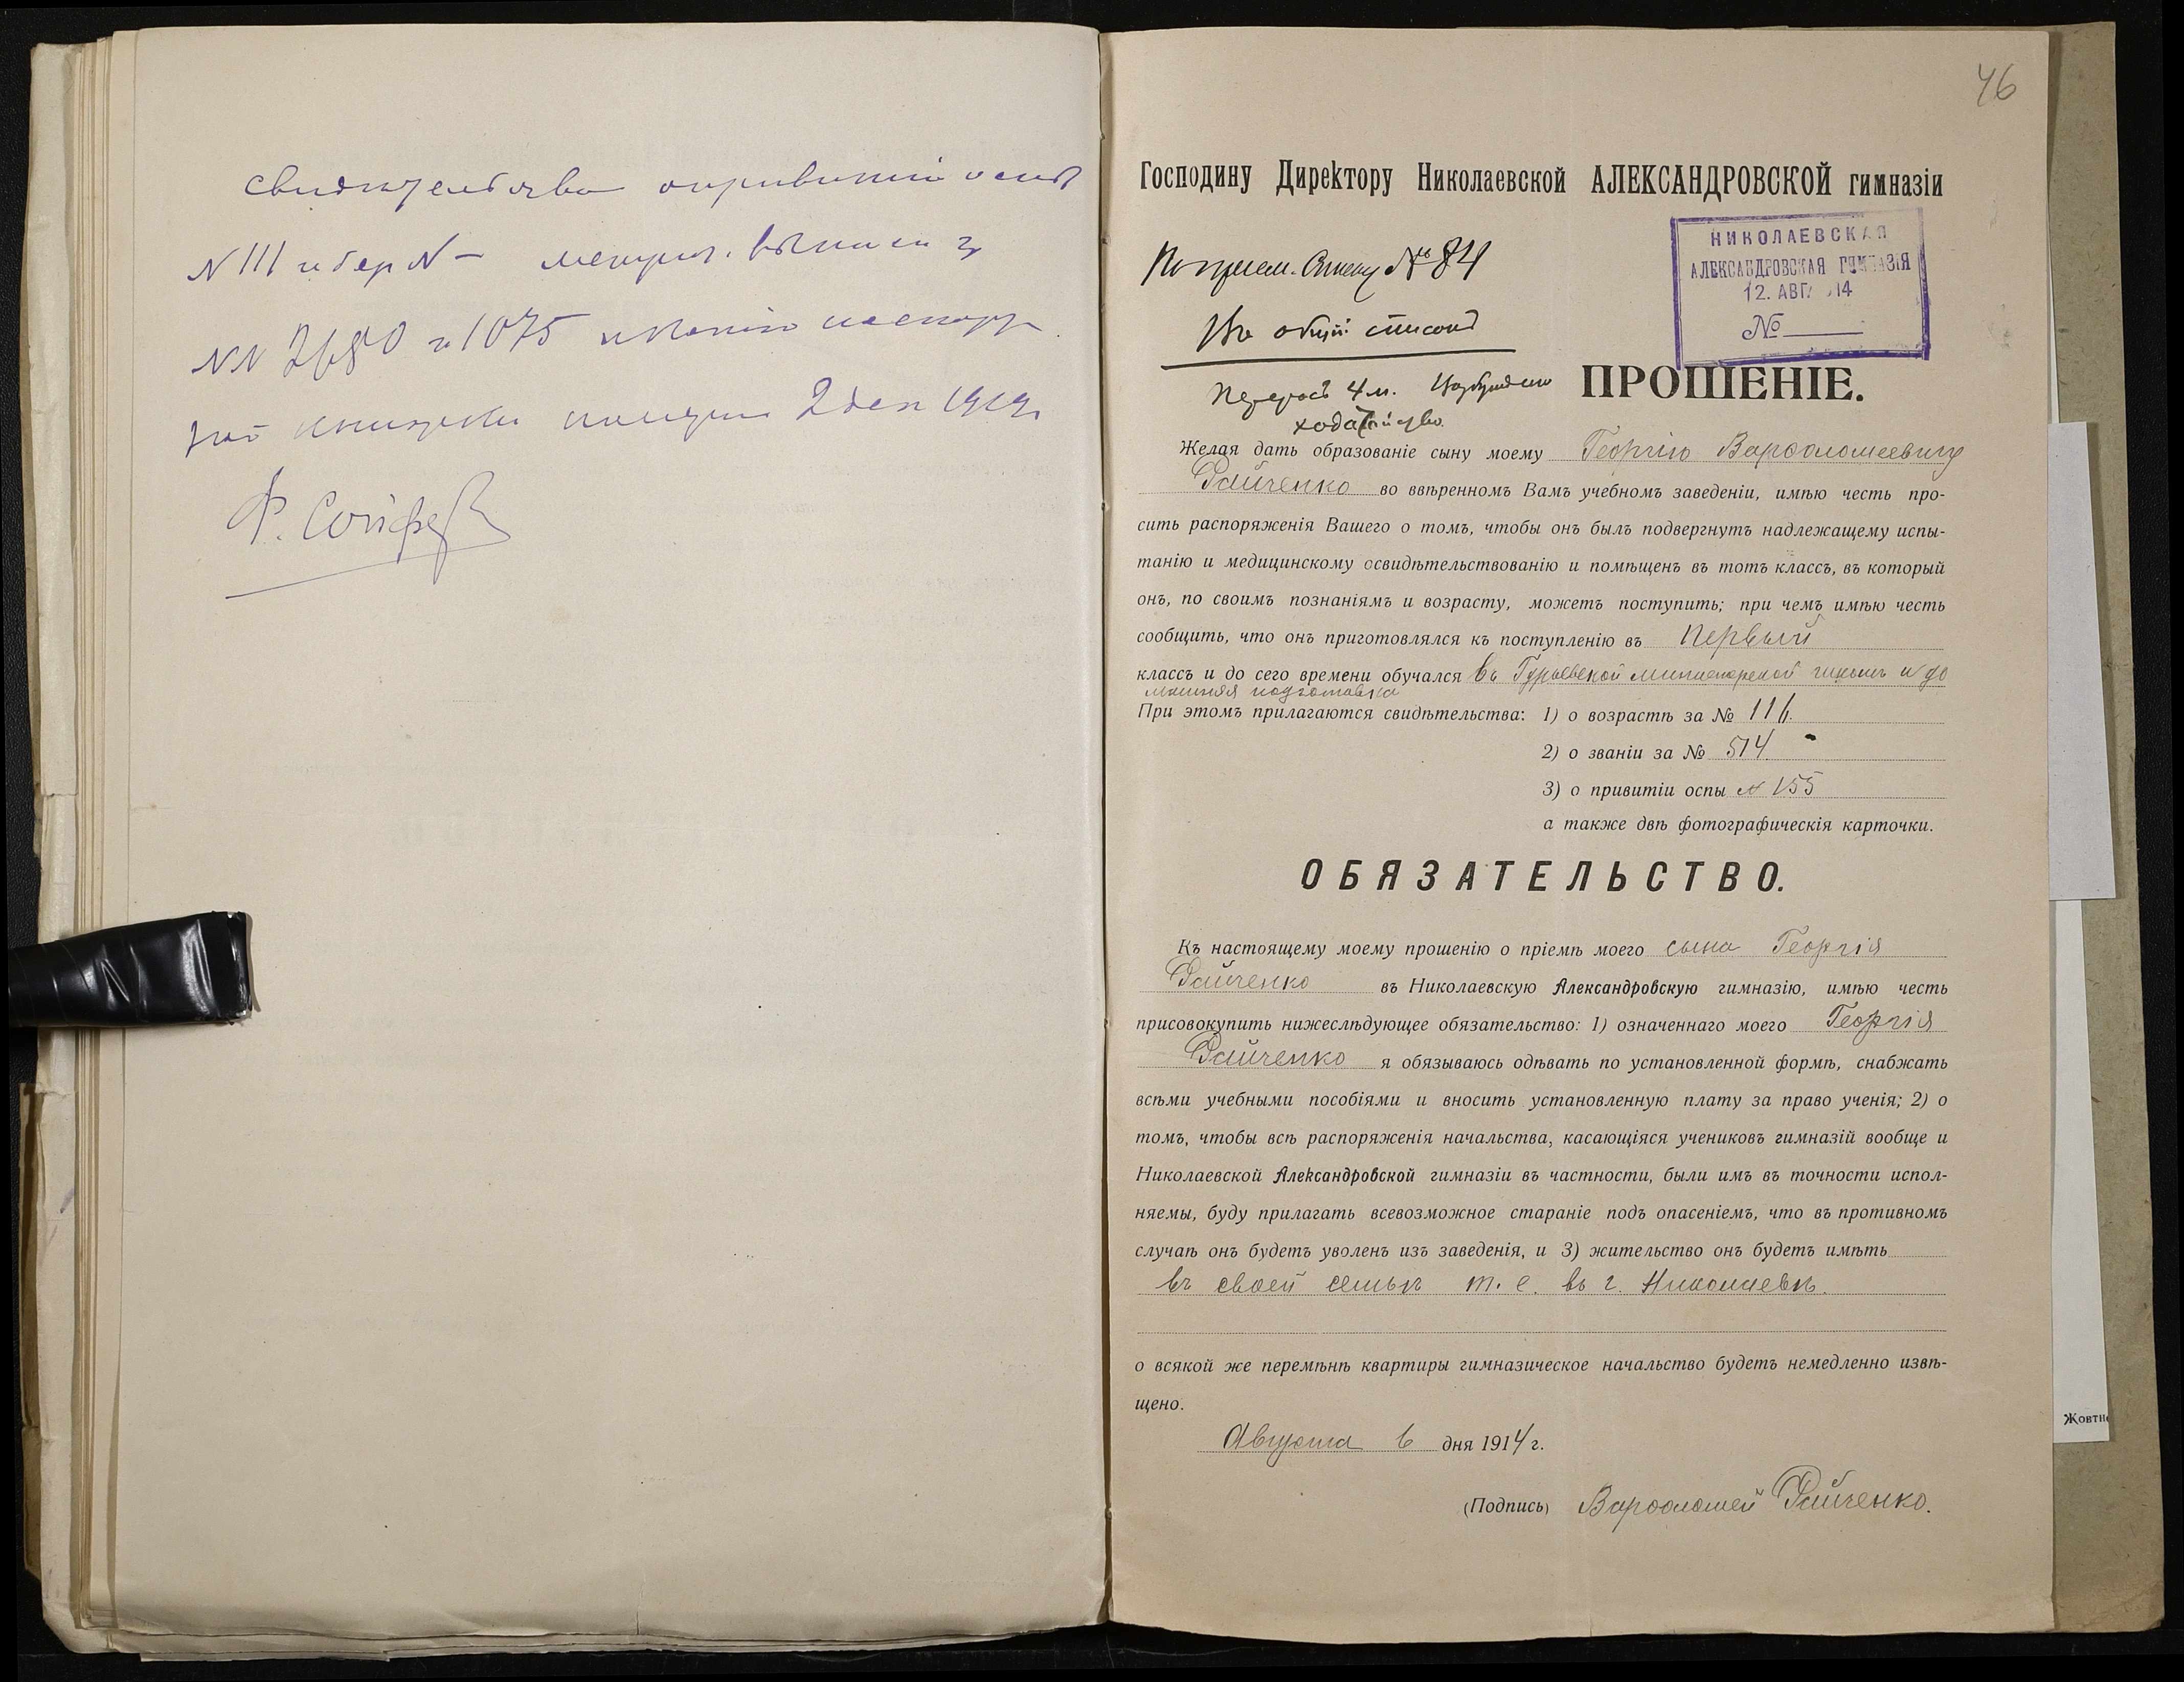 свидетельства о привитіи оспы
N 111 и без N – метрич. выписи за
NN 2680 и 1075 и копію паспорт
ной книжки получил 2 дек 1919 г
46
Господину Директору Николаевской АЛЕКСАНДРОВСКОЙ гимназіи
НИКОЛАЕВСКАЯ
АЛЕКСАНДРОВСКАЯ ГИМНАЗІЯ
12. АВГ 14
№
По прием. списку № 84
Въ общій списокъ
Переросъ 4 м. Возбуждено
ходатайство.
ПРОШЕНІЕ.
Желая дать образованіе сыну моему Георгію Варфоломеевичу
Райченко во ввѣренномъ Вамъ учебномъ заведеніи, имѣю честь про-
сить распоряженія Вашего о томъ, чтобы онъ былъ подвергнутъ надлежащему испы-
танію и медицинскому освидѣтельствованію и помѣщенъ въ тотъ классъ, въ который
онъ, по своимъ познаніямъ и возрасту, можетъ поступить; при чемъ имѣю честь
сообщить, что онъ приготовлялся къ поступленію въ Первый
классъ и до сего времени обучался въ Гурьевской министерской школѣ и до
машняя подготовка
При этомъ прилагаются свидѣтельства: 1) о возрастѣ за № 116.
2) о званіи за № 514.
3) о привитіи оспы N 155
а также двѣ фотографическія карточки.
ОБЯЗАТЕЛЬСТВО.
Къ настоящему моему прошенію о пріемѣ моего сына Георгія
Райченко въ Николаевскую Александровскую гимназію, имѣю честь
присовокупить нижеслѣдующее обязательство: 1) означеннаго моего Георгія
Райченко я обязываюсь одѣвать по установленной формѣ, снабжать
всѣми учебными пособіями и вносить установленную плату за право ученія; 2) о
томъ, чтобы всѣ распоряженія начальства, касающіяся учениковъ гимназій вообще и
Николаевской Александровской гимназіи въ частности, были имъ въ точности испол-
няемы, буду прилагать всевозможное стараніе подъ опасеніемъ, что въ противномъ
случаѣ онъ будетъ уволенъ изъ заведенія, и 3) жительство онъ будетъ имѣть
въ своей семьѣ т. е. въ г. Николаевѣ.
о всякой же перемѣнѣ квартиры гимназическое начальство будетъ немедленно извѣ-
щено.
Августа 6 дня 1914 г.
(Подпись) Варфоломей Райченко.
Жовтн